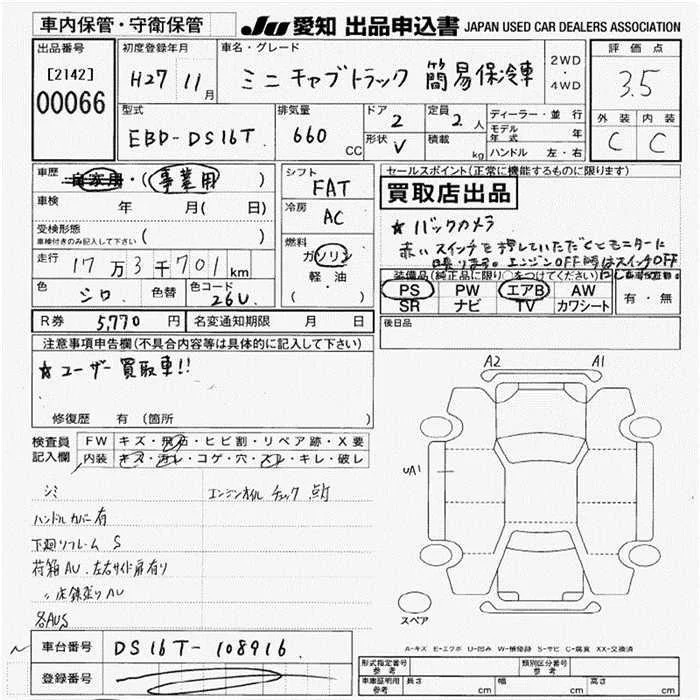 車内保管・守衛保管
JU 愛知 出品申込書 JAPAN USED CAR DEALERS ASSOCIATION
出品番号
[2142]
00066
初度登録年月
H27 11月
車名・グレード
ミニキャブトラック 簡易保冷車
2WD
・
4WD
評価点
3.5
外装 内装
C C
型式
EBD-DS16T
排気量
660 CC
ドア 2
形状 V
定員 2人
積載 kg
ディーラー・並行
モデル年式 年
ハンドル 左・右
車歴
自家用・(事業用)
車検 年 月( 日)
受検形態
車検付きのみ記入して下さい ( )
走行 17万3千701km
色 シロ 色替
色コード 26U
シフト
FAT
冷房
AC
燃料
ガソリン
軽・油
( )
セールスポイント(正常に機能するものに限ります)
買取店出品
★バックカメラ
赤いスイッチを押していただくとモニターに
映ります。エンジンOFF時はスイッチOFF
装備品(純正品に限り○をつけてください)
PS PW エアB AW
SR ナビ TV カワシート
有・無
R券 5,770円
名変通知期限 月 日
後日品
注意事項申告欄(不具合内容等は具体的に記入して下さい)
★ユーザー買取車!!
修復歴 有(箇所 )
検査員
記入欄
FW キズ・飛石・ヒビ割・リペア跡・X要
内装 キズ・汚レ・コゲ・穴・スレ・キレ・破レ
シミ
エンジンオイルチェック点灯
ハンドルカバー有
下廻りフレームS
荷箱AU.左右サイド扉有り
〃床鉄張りAU
各AUS
A2 A1
UA1
スペア
A-キズ E-エクボ U-凹み W-補修跡 S-サビ C-腐食 XX-交換済
車台番号 DS16T-108916
登録番号
形式指定番号
参考
類別区分番号
参考
車庫証明用
参考
長さ cm 幅 cm 高さ cm